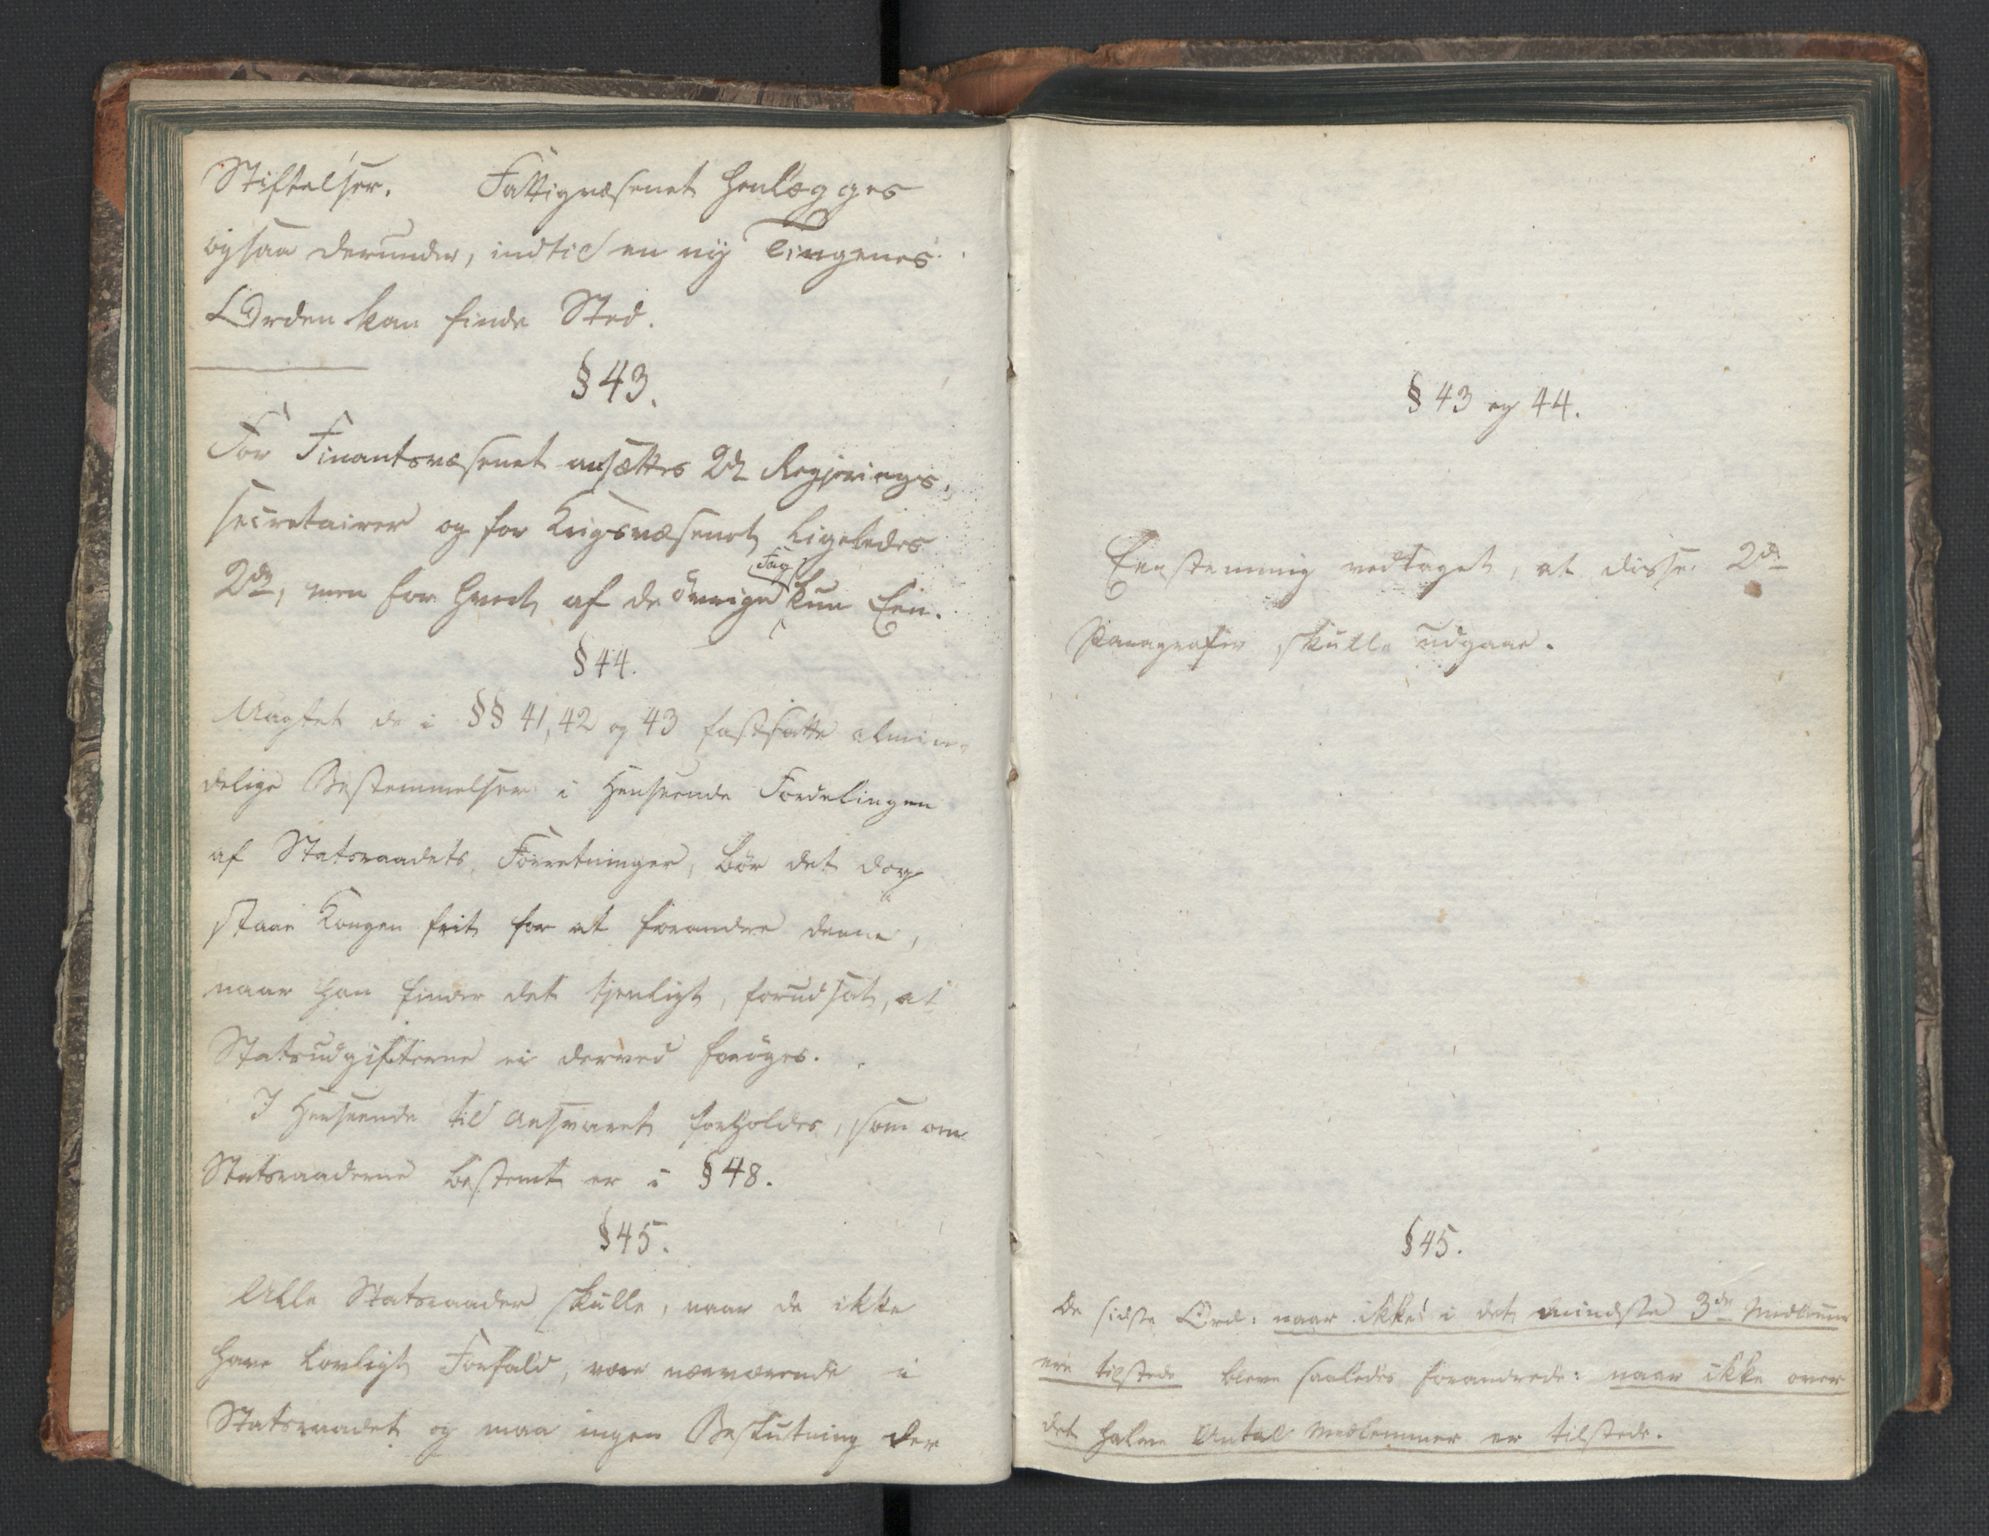 Stiftelser. Fattigvæsenet henlægges
ogsaa derunder, indtil en ny Tingenes
Orden kan finde Sted.
§ 43.
For Finantsvæsenet ansættes 2de Regjerings,
secretairer og for Krigsvæsenet ligeledes
2de, men for hvert af de övrige Fag kun Een.
§ 44.
Uagtet de i §§ 41, 42 og 43 fastsatte almin,
delige Bestemmelser i Henseende Fordelingen
af Statsraadets Forretninger, bör det dog
staae Kongen frit for at forandre denne,
naar han finder det tjenligt, forudsat, at
Statsudgifterne ei derved foröges.
I Henseende til Ansvaret forholdes, som om
Statsraaderne bestemt er i § 48.
§ 45.
Alle Statsraader skulle, naar de ikke
have lovligt Forfald, være nærværende i
Statsraadet og maa ingen Beslutning der
§ 43 og 44.
Eenstemmig vedtaget, at disse 2de
Paragrafer skulle udgaae.
§ 45.
De sidste Ord: naar ikke i det mindste 3de Medlemmer
ere tilstede bleve saaledes forandrede: naar ikke over
det halve Antal Medlemmer er tilstede.